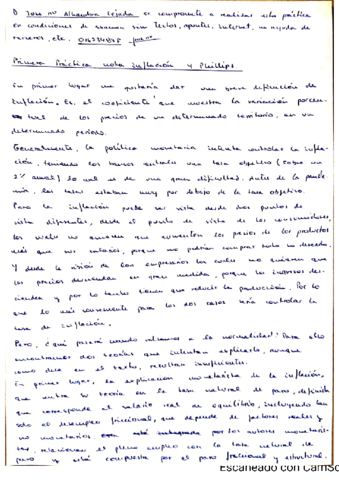 D. José Mª Alhambra Tejada se compromete a realizar esta práctica
en condiciones de examen sin textos, apuntes, internet, ni ayuda de
terceros, etc.
Primera Práctica nota inflación y Phillips
En primer lugar me gustaría dar una breve definición de
inflación. Es el coeficiente que muestra la variación porcen-
tual de los precios de un determinado territorio, en un
determinado periodo.
Generalmente, la política monetaria intenta controlar la infla-
ción, teniendo los bancos centrales una tasa objetivo (sobre un
2% anual) lo cual es de una gran dificultad. Antes de la pande-
mia, las tasas estaban muy por debajo de la tasa objetivo.
Pero la inflación puede ser vista desde dos puntos de
vista diferentes, desde el punto de vista de los consumidores,
los cuales no quieren que aumenten los precios de los productos
más que sus salarios, porque no podrían comprar todo lo deseado.
Y desde la visión de los empresarios los cuales no quieren que
los precios desciendan en gran medida, porque los ingresos des-
cienden y por lo tanto tienen que reducir la producción. Por lo
que lo más conveniente para los dos casos sería controlar la
tasa de inflación.
Pero, ¿qué pasará cuando volvamos a la normalidad? Para ello
encontramos dos teorías que intentan explicarlo, aunque
como dice en el texto, resultan insuficientes.
En primer lugar, la explicación monetarista de la inflación,
que centra su teoría en la tasa natural de paro, definida
que corresponde al salario real de equilibrio, incluyendo tan
solo el desempleo friccional, que depende de factores reales y
no monetarios por los autores monetaris-
tas, relacionan el pleno empleo con la tasa natural de
paro y está compuesta por el paro friccional y estructural.
Escaneado con CamSc